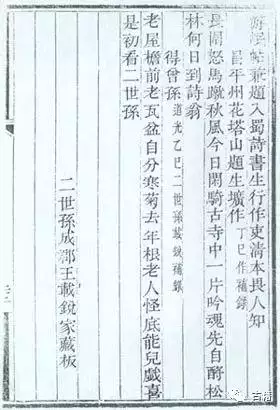 字帖兼題入蜀詩書生行作吏清本畏人知
昌平州花塔山題生壙作丁巳作補錄
長閒怒馬蹴秋風今日閒騎古寺中一片吟魂先自醉松
林何日到詩翁
得曾孫道光乙巳二世孫載銳補錄
老屋檐前老瓦盆自分寒菊去年根老人怪底能兒戲喜
是初看二世孫
二世孫成郡王載銳家藏板